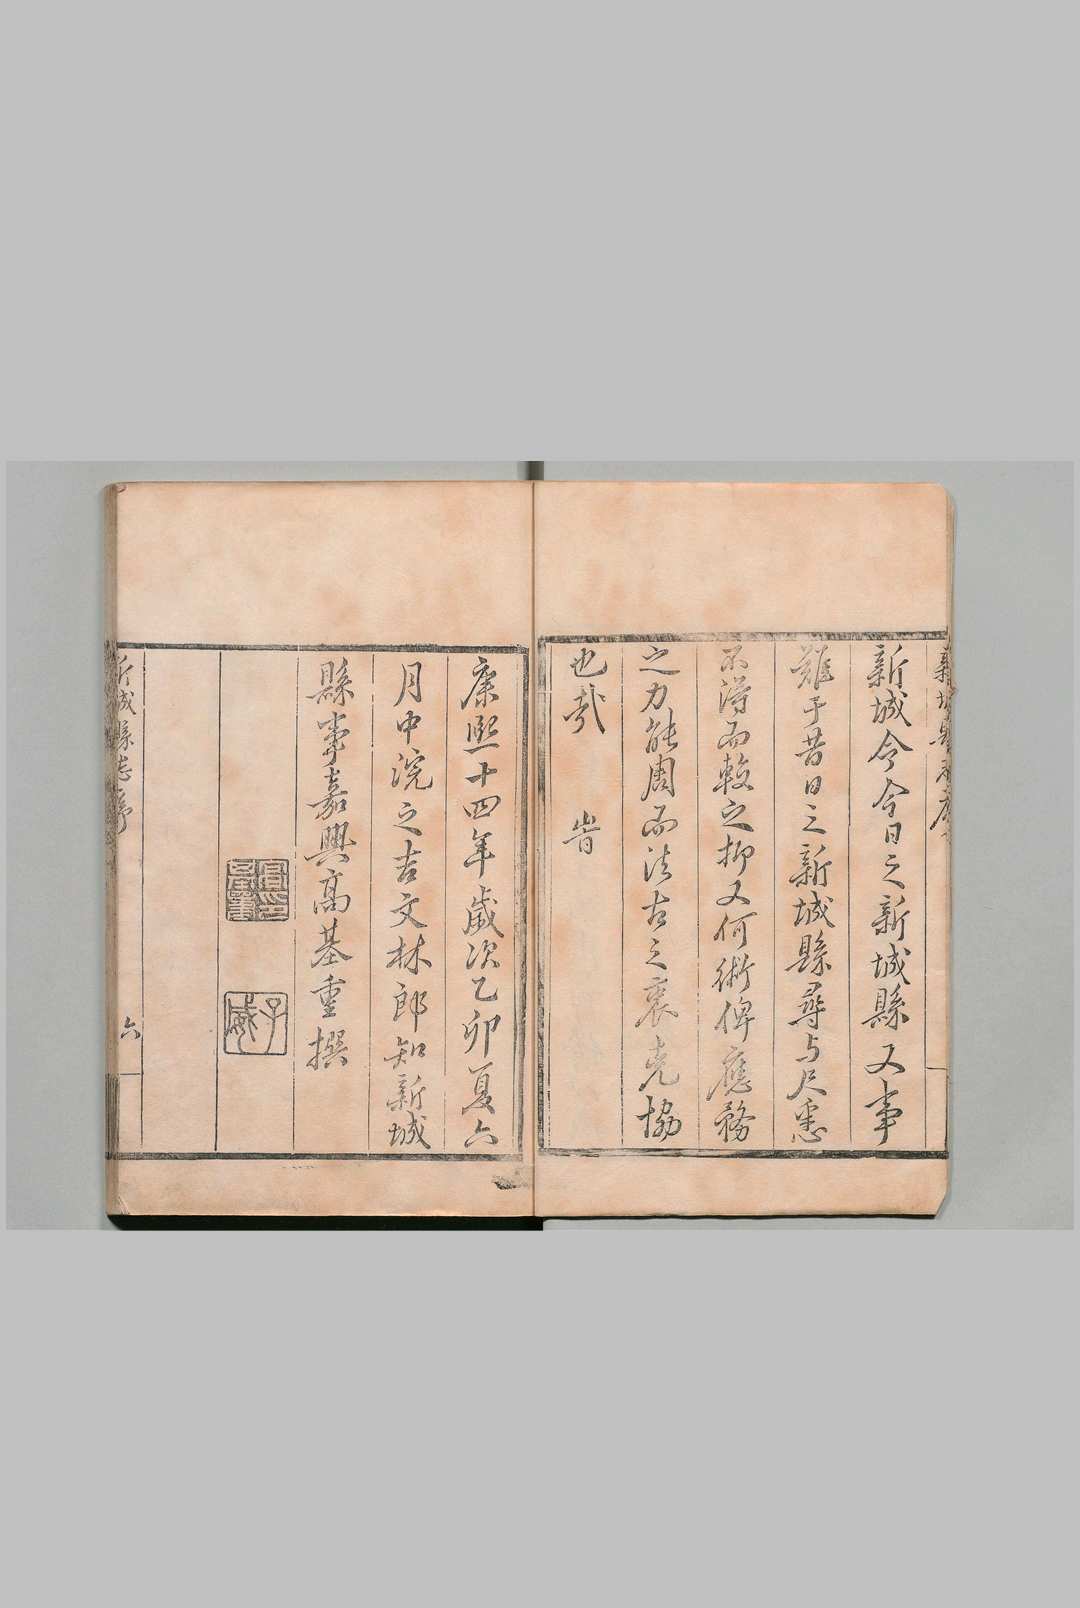 新城令今日之新城縣又事
難于昔日之新城縣尋与尺悉
不得而較之抑又何術俾應務
之力能周而法古之衷克協
也哉　峕
康熙十四年歲次乙卯夏六
月中浣之吉文林郎知新城
縣事嘉興高基重撰
子威
新城縣志序
六